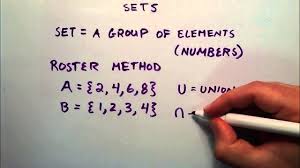 SETS
SET = A GROUP OF ELEMENTS
(NUMBERS)
ROSTER METHOD
A = {2,4,6,8} U = UNION
B = {1,2,3,4} ∩ -